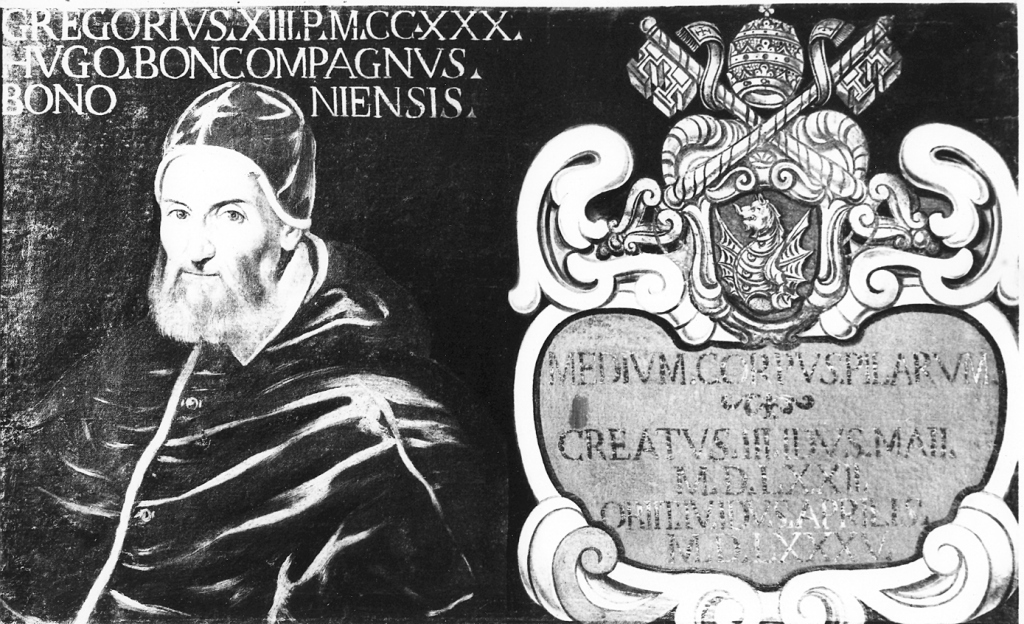 GREGORIVS.XIII.P.M.CCXXX.
HVGO.BONCOMPAGNVS.
BONO NIENSIS.
MEDIVM.CORPVS.PILARVM
CREATVS.III.IDVS.MAII.
M.D.LXXII.
OBIIT.IV.IDVS.APRILIS.
M.D.LXXXV.